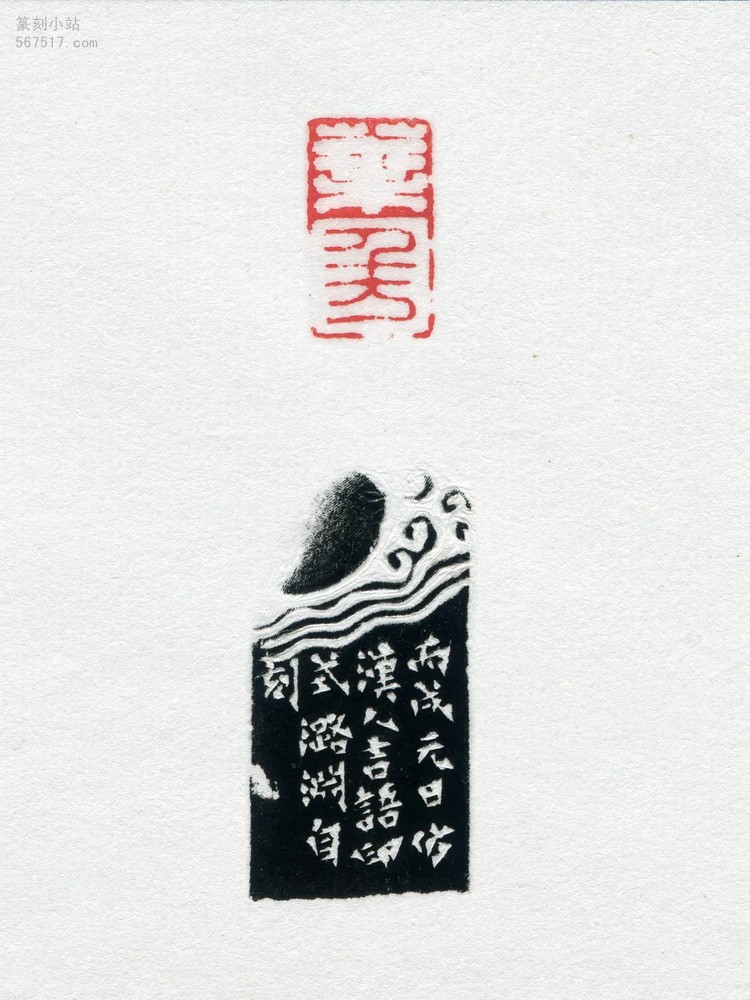 篆刻小站
567517.com
葉
丙戌元日仿
漢人吉語印
式潞淵自
刻